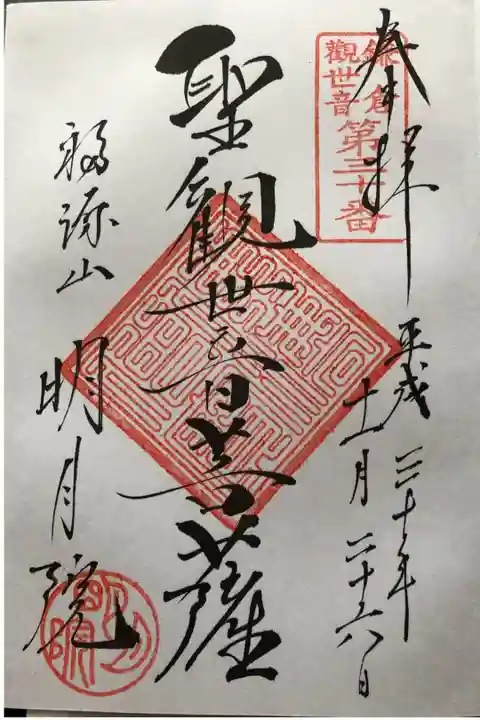 奉拝
鎌倉
觀世音
第三十番
平成三十年
十一月二十六日
聖觀世音菩薩
福源山
明月院